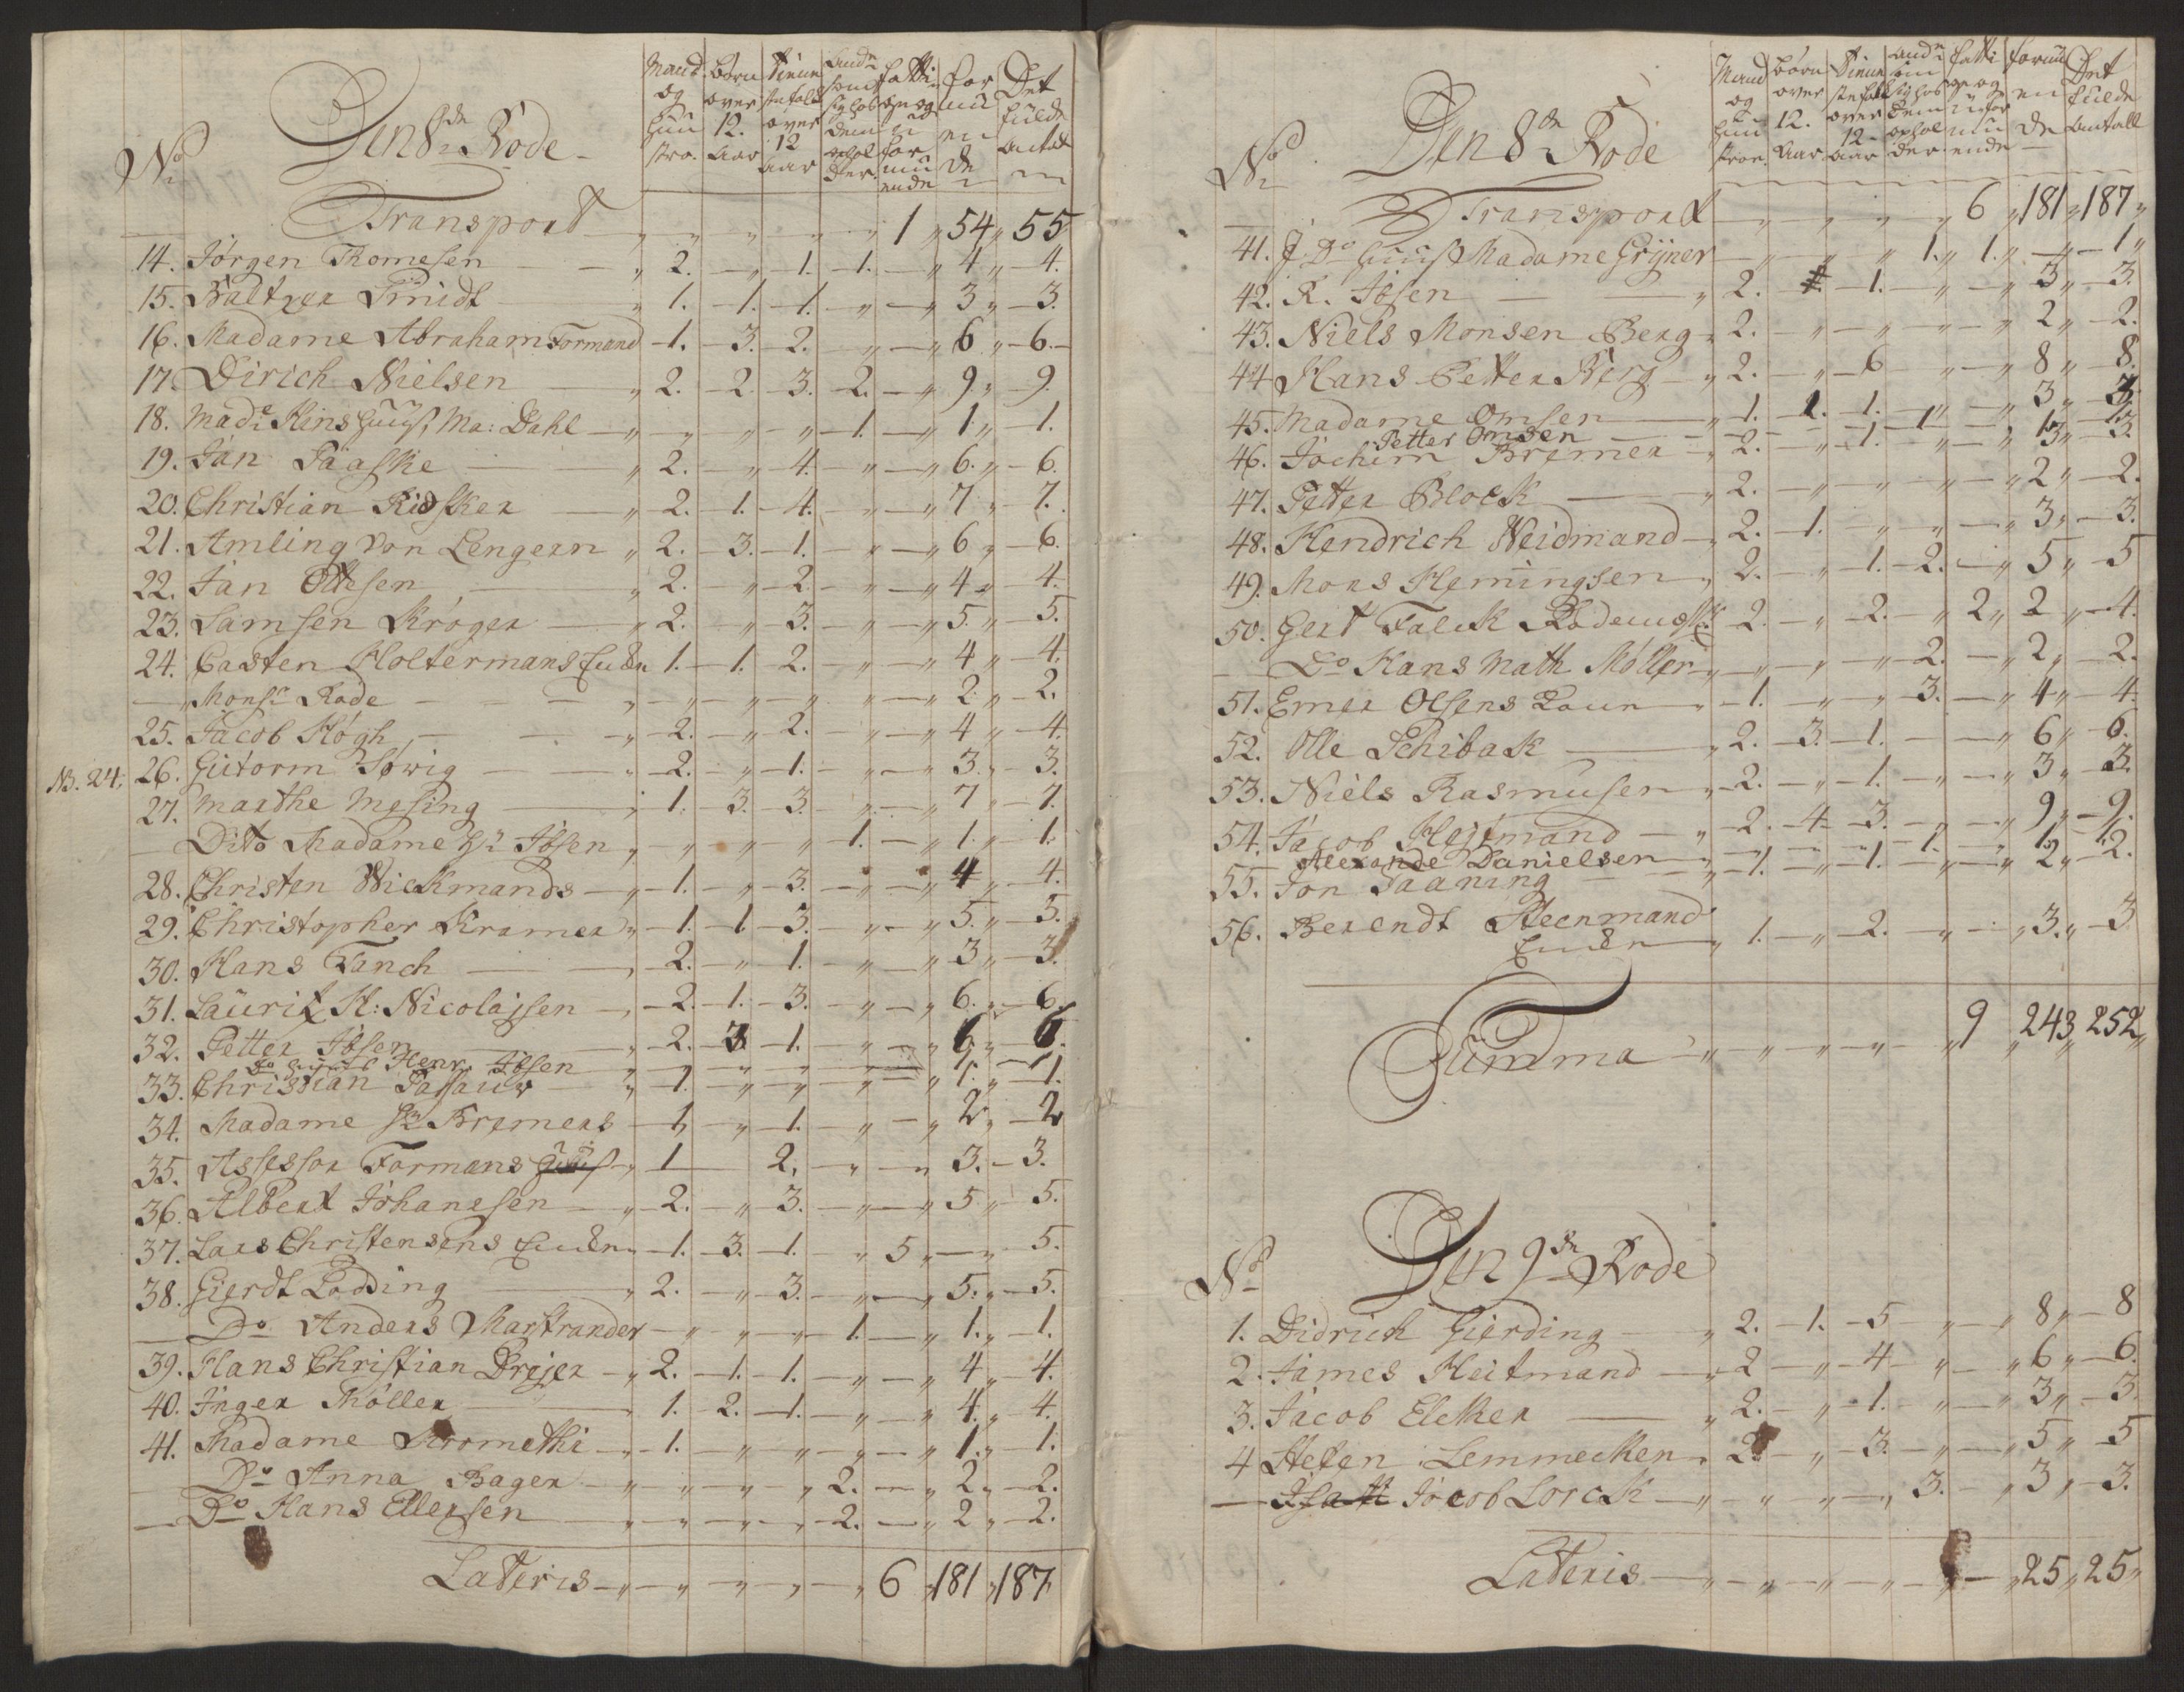 No Den 8de Rode
Mand og Hustro. Børn over 12. Aar Tienniste folk over 12 aar Andre som sig hos dem opholder. Fatti ge og uformuende Formuende Det fulde antal
Transport " " " " " 1 " 54 " 55
14. Jørgen Thomesen 2. " 1. 1. " 4 " 4.
15. Baltzer Smidt 1. 1. 1. " " 3 " 3.
16. Madame Abraham Formand 1. 3. 2. " " 6 " 6.
17. Dirich Nielsen 2. 2. 3. 2. " 9 " 9.
18. Made Kins huus, Ma: Dahl " " " 1. " 1 " 1.
19. Jan Paaske 2. " 4. " " 6. " 6.
20. Christian Risker 2. 1. 4. " " 7 " 7.
21. Amling von Lengern 2. 3. 1. " " 6 " 6.
22. Jan Ottesen 2. " 2. " " 4 " 4.
23. Samsen Krøger 2. " 3. " " 5. " 5.
24. Casten Holtermans Enke 1. 1. 2. " " 4 " 4.
" Monsr. Rode " " " " " 2. " 2.
25. Jacob Høgh 2. " 2. " " 4 " 4.
NB. 24. 26. Gutorm Søwig 2. " 1. " " 3. " 3.
27. Marthe Mesing 1. 3. 3. " " 7 " 7.
Dito Madame Sl Ibsen " " " 1. " 1. " 1.
28. Christen Wickmands 1. " 3. " " 4 " 4.
29. Christopher Kramer 1. 1 3. " " 5. " 5.
30. Hans Fanch 2. " 1. " " 3 " 3.
31. Lauritz H: Nicolajsen 2. 1. 3. " " 6. " 6.
32. Petter Ibsen 2. 3 1. " " 6 " 6.
Do huus Henr. Ibsen " " " " " 1. " 1
33. Christian Passauw 1. " " " " 1. " 1.
34. Madame Sl Bremers 1. " 1. " " 2 " 2
35. Assessor Formans huus 1 2. " " 3. 3.
36. Albert Johansen 2. " 3. " " 5 " 5.
37. Lars Christensens Enke 1. 3. 1. " 5 " " 5.
38. Gierdt Lodding 2. " 3. " " 5. " 5.
Do Anders Marstrander " " " 1. " 1. " 1.
39. Hans Christian Drejer 2. 1. 1. " " 4 " 4.
40. Inger Møller 1. 2. 1. " " 4. " 4.
41. Madame Kromethi 1. " " " " 1. " 1.
Do Anna Bager " " " 2. " 2. " 2.
Do Hans Ellersen " " " 2. " 2 " 2.
Lateris " " " " 6 " 181 " 187
No Den 8de Rode
Mand og Hustroe. Børn over 12. Aar Tienniste folk over 12. aar Andre som sig hos dem opholder. Fatti ge og uformuende Formuende Det fulde antall
Transport " " " " 6 " 181 " 187 "
41. I Do huus Madame Grijner " " " 1. 1. " 1 "
42. R. Ibsen 2. 1. " " 3 " 3.
43. Niels Monsen Berg 2. " " " " 2 " 2.
44 Hans Petter Berg 2. " 6 " " 8 " 8.
45. Madame Omsen 1. 1. 1. " " 3 " 3.
Petter Omsen 1 " 1. 1.
46. Jochim Bremer 2. " 1. " " 3 " 3.
47. Petter Block 2. " " " " 2 " 2.
48. Hendrich Weidmand 2. 1. " " " 3 " 3.
49. Mons Hemingsen 2. " 1. 2. " 5 " 5
50. Gert Falck Rodemester 2. " 2. " 2 " 2 " 4.
Do Hans Math Møller " " " 2. " 2 " 2.
51. Emer Olsens 1. " " 3. " 4 " 4.
52. Olle Schibak 2. 3. 1. " 6 " 6.
53. Niels Rasmusen 2. " 1. " " 3 " 3.
54. Jacob Hejtmand 2. 4 3. " " 9 " 9.
Alexande Danielsen " " " 1. 1. 1.
55. Jon Taaning 1. " 1. " " 2 " 2.
56. Berendt Steenmand
Enke 1. " 2. " " 3. " 3
Summa " " " " " 9 " 243 " 252 "
No Den 9de Rode
1. Didrich Gierding 2. 1. 5 " " 8 " 8
2. James Heitmand 2 " 4 " " 6 " 6.
3. Jacob Elcker 2. " 1. " " 3 " 3.
4 Helen Lemmecken 2. " 3. " " 5 " 5
Jacob Lorck " " " 3. " 3 " 3.
Lateris " " " " " " 25 " 25 "